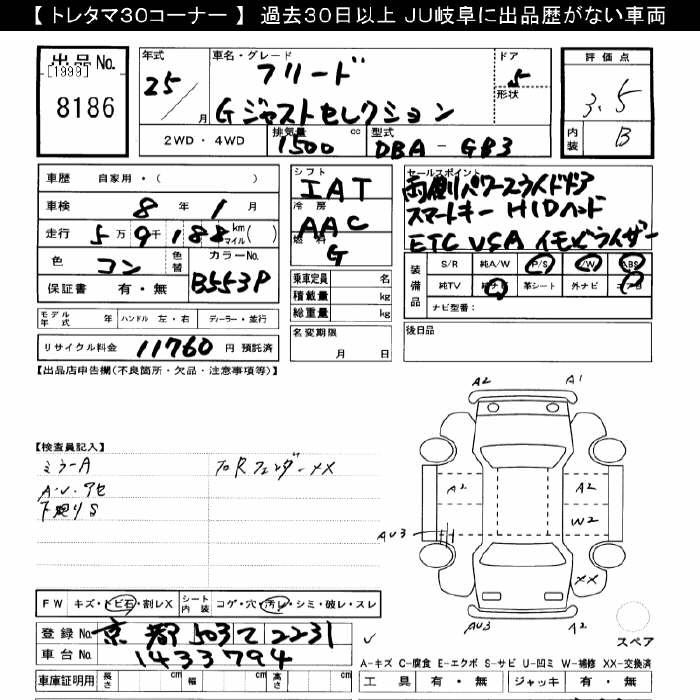 【 トレタマ30コーナー 】 過去30日以上 JU岐阜に出品歴がない車両
出品 No.
[1999]
8186
年式
25
月
車名・グレード
フリード
Gジャストセレクション
ドア
5
形状
評価点
3.5
内装
B
2WD・4WD
排気量
1500
cc
型式
DBA - GB3
車歴 自家用・( )
車検 8 年 1 月
走行 5 万 9 千 188 km マイル ( )
色 コン
色替
カラーNo. B553P
保証書 有・無
シフト
IAT
冷房
AAC
燃料
G
セールスポイント
両側パワースライドドア
スマートキー HIDヘッド
ETC VSA イモビライザー
乗車定員 名
積載量 kg
総重量 kg
装備品
S/R 純A/W P/S P/W ABS
純TV 純ナビ 革シート 外ナビ エアB
ナビ型番:
モデル年式 年 ハンドル 左・右 ディーラー・並行
名変期限
月 日
後日品
リサイクル料金 11760 円 預託済
【出品店申告欄(不良箇所・欠品・注意事項等)】
【検査員記入】
ミラーA
A・U・アセ
下廻りS
フロRフェンダーXX
A2
A1
A2
A2
W2
AU3
XX
AU3
A2
スペア
FW キズ・トビ石・割レX
シート内装 コゲ・穴・汚レ・シミ・破レ・スレ
登録 No. 京都 503 て 2231
車台 No. 1433794
A-キズ C-腐食 E-エクボ S-サビ U-凹ミ W-補修 XX-交換済
車庫証明用 長さ cm 幅 cm 高さ cm
工具 有・無 ジャッキ 有・無